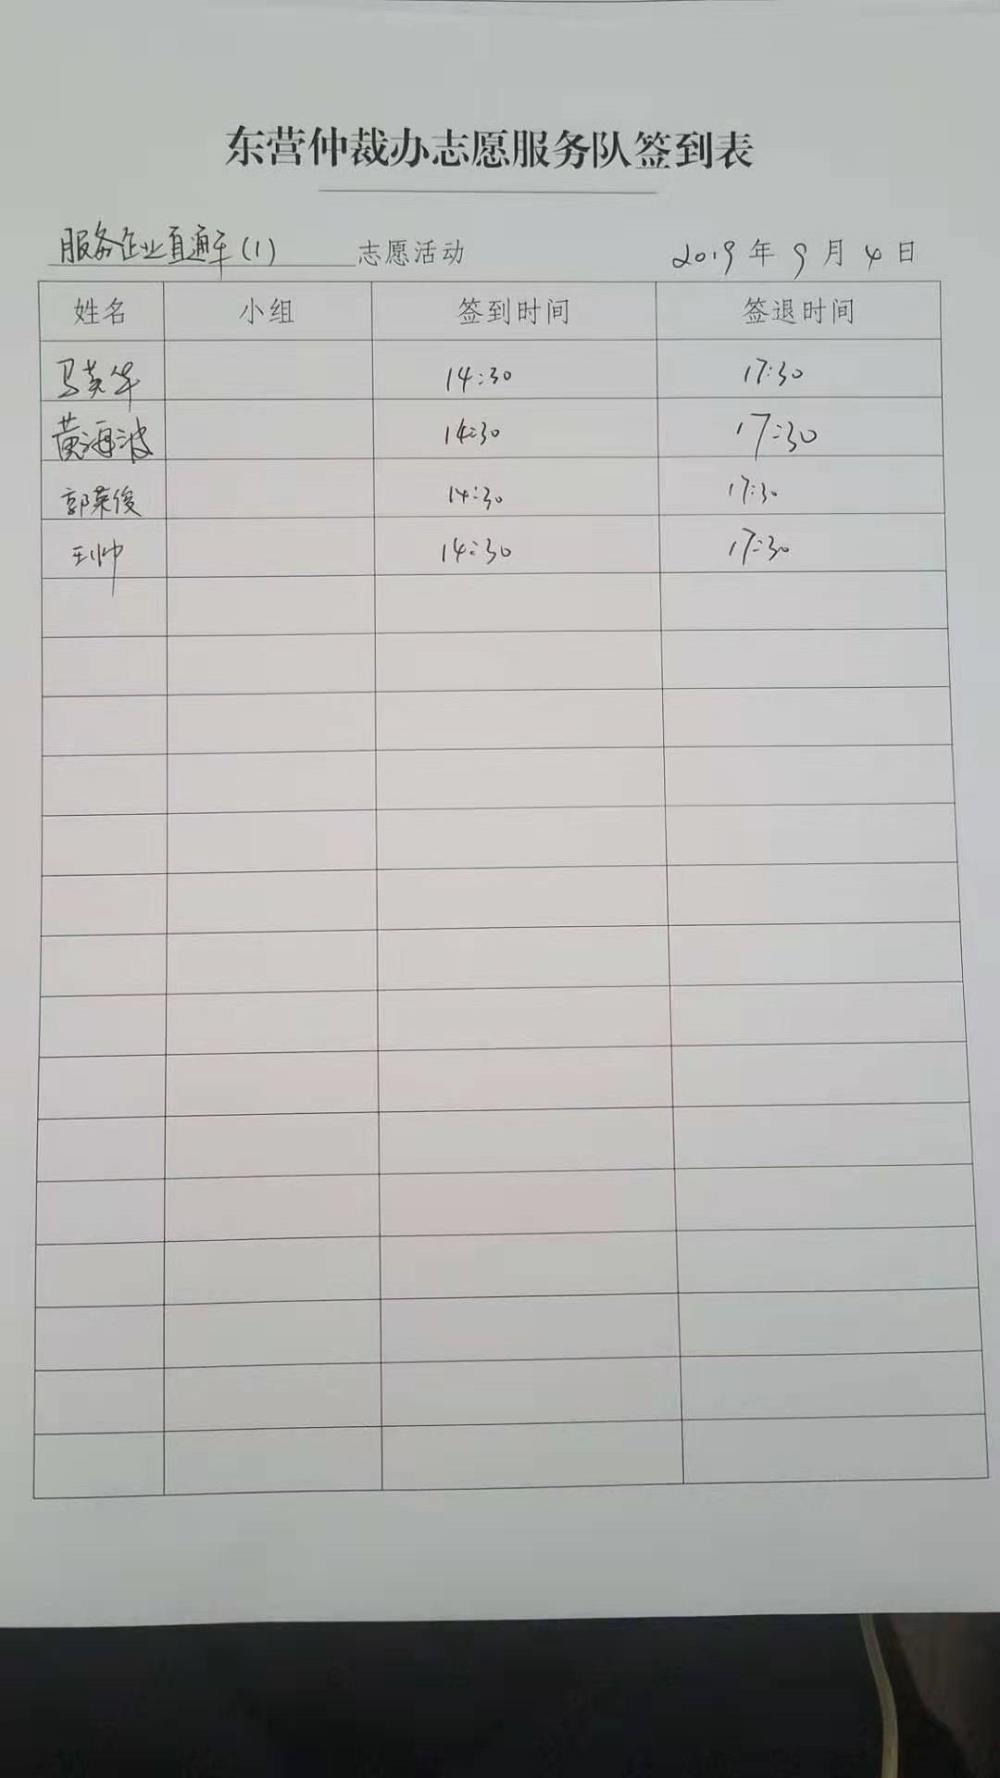 东营仲裁办志愿服务队签到表
服务企业直通车(1) 志愿活动 2019年9月4日
姓名 小组 签到时间 签退时间
马英华 14:30 17:30
黄海波 14:30 17:30
郭荣俊 14:30 17:30
王帅 14:30 17:30